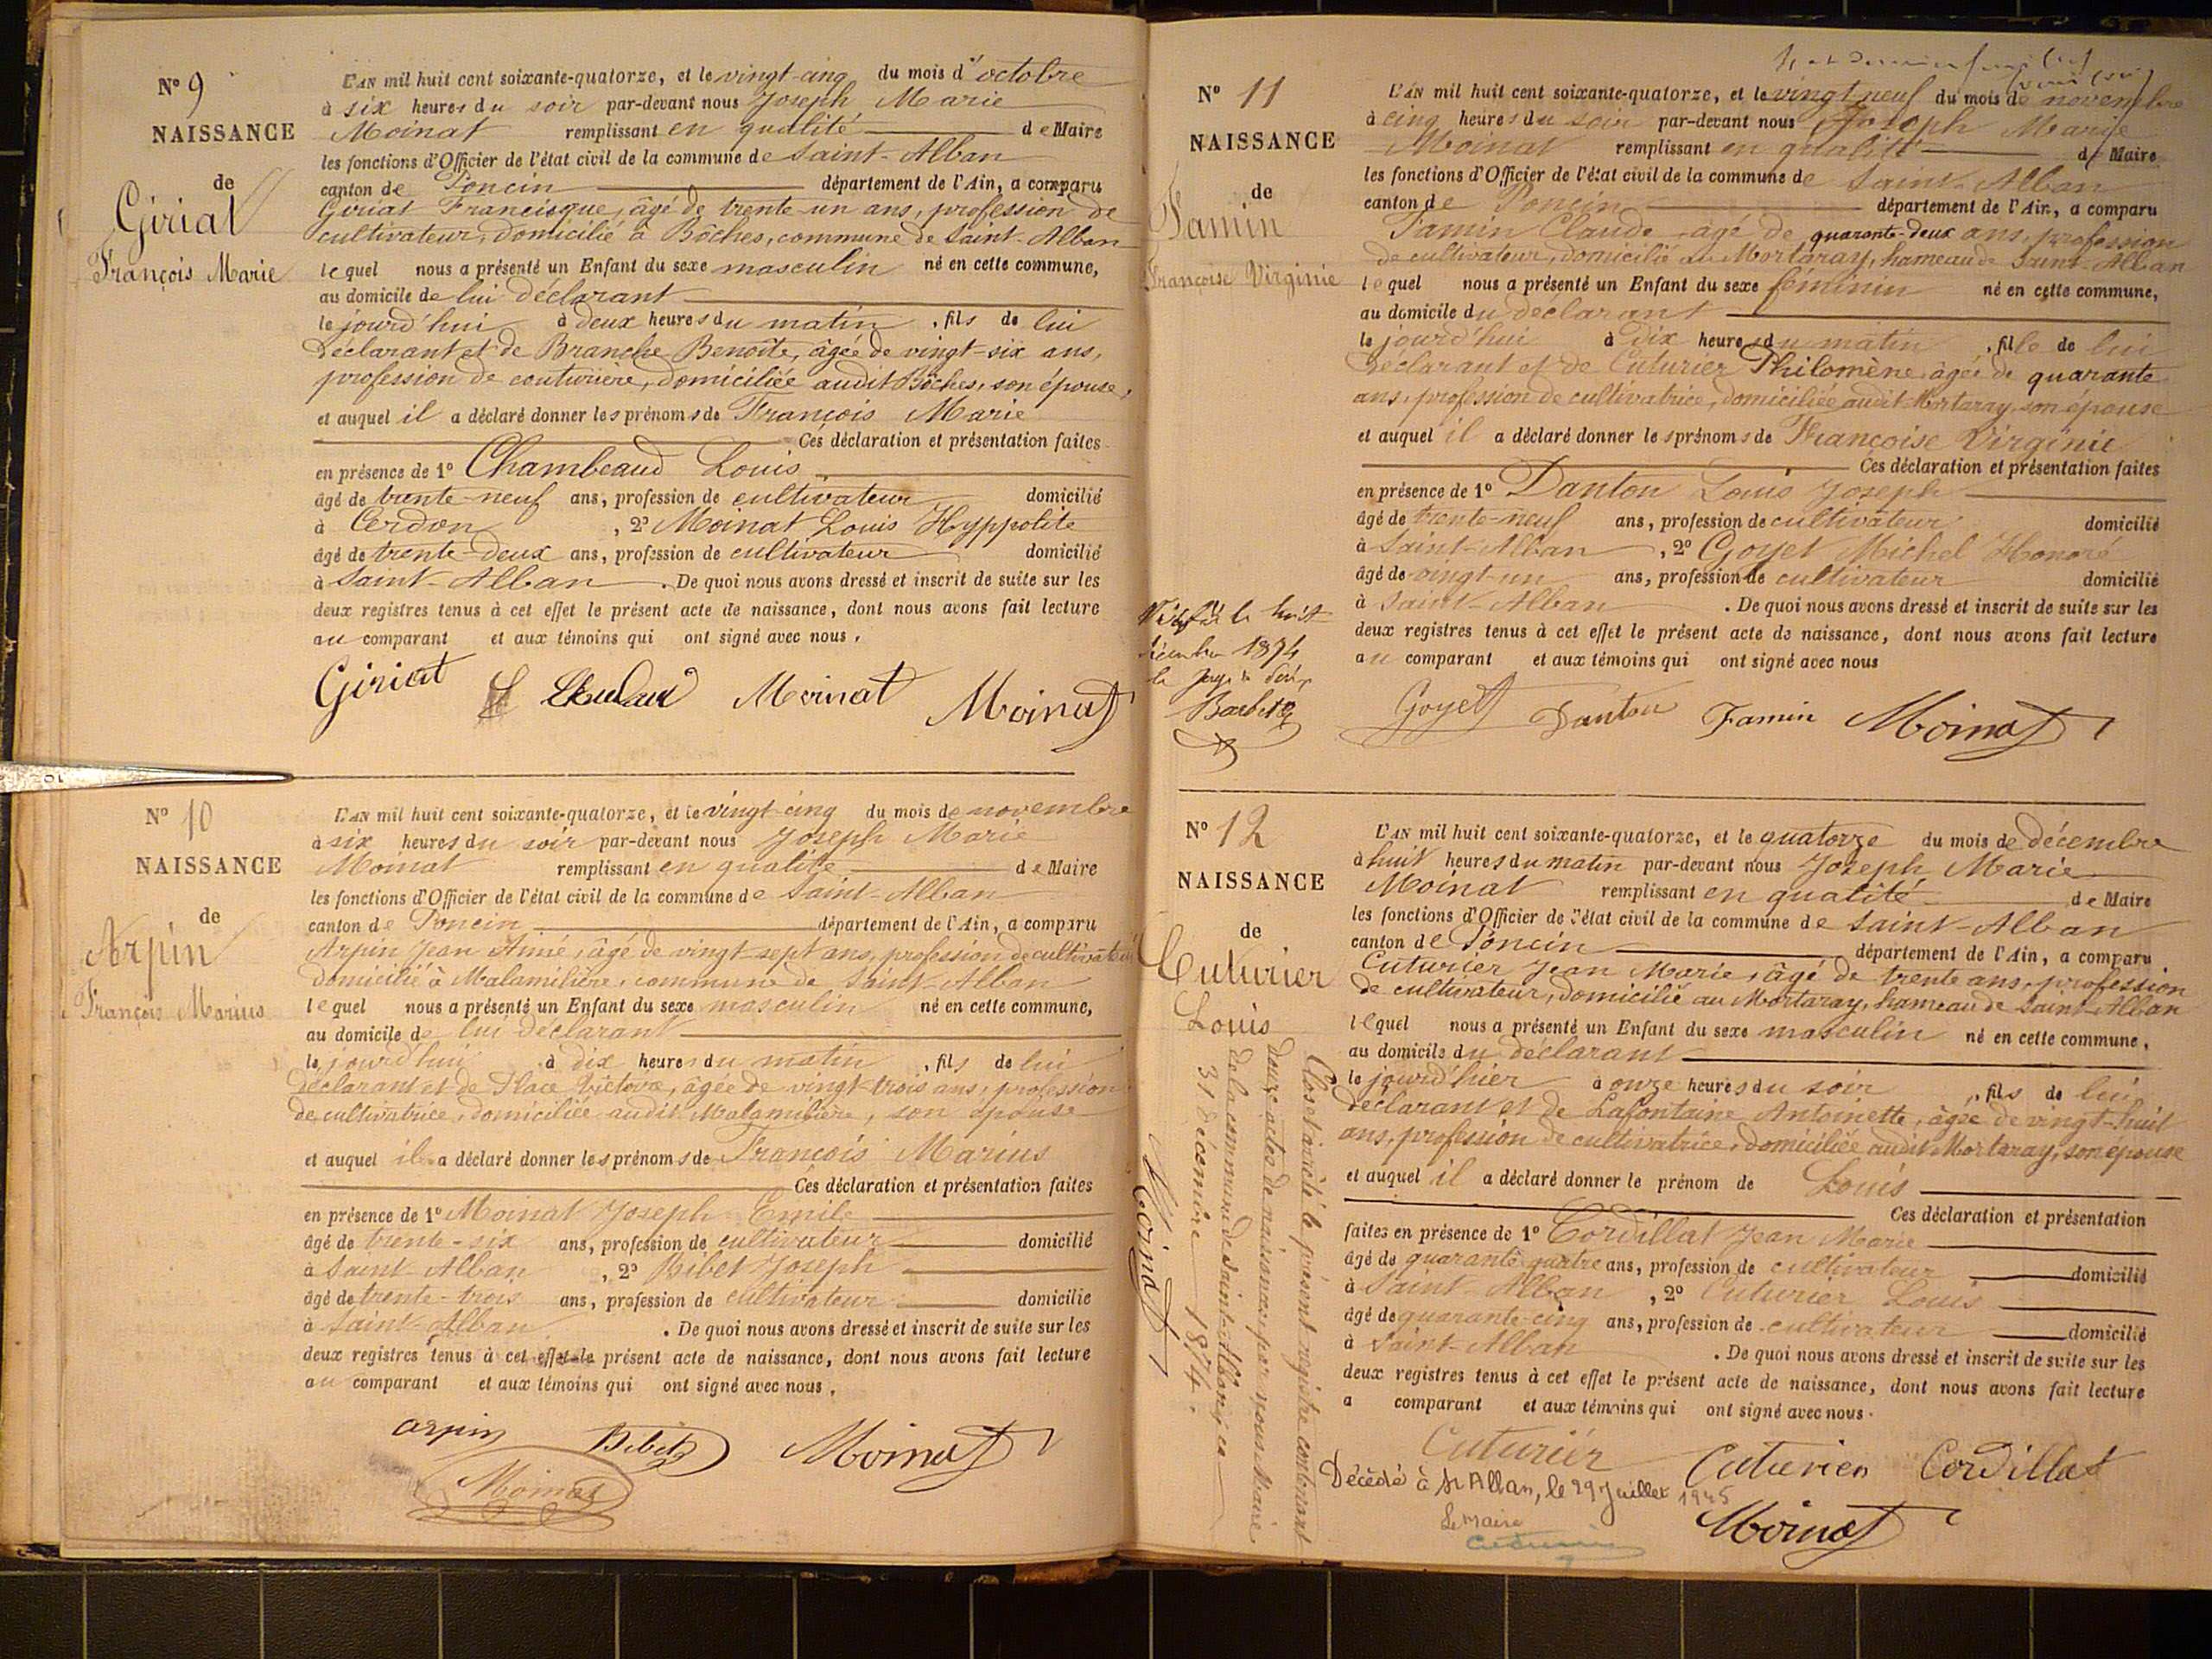 N° 9
NAISSANCE
de
Giriat
François Marie
L'AN mil huit cent soixante-quatorze, et le vingt-cinq du mois d'octobre
à six heures du soir par-devant nous Joseph Marie
Moinat remplissant en qualité de Maire
les fonctions d'Officier de l'état civil de la commune de Saint-Alban
canton de Poncin département de l'Ain, a comparu
Giriat Francisque, âgé de trente-un ans, profession de
cultivateur, domicilié à Bôches, commune de Saint-Alban
lequel nous a présenté un Enfant du sexe masculin né en cette commune,
au domicile de lui déclarant
le jourd'hui à deux heures du matin, fils de lui
déclarant et de Branche Benoîte, âgée de vingt-six ans,
profession de couturière, domiciliée audit Bôches, son épouse,
et auquel il a déclaré donner les prénoms de François Marie
Ces déclaration et présentation faites
en présence de 1° Chambeaud Louis
âgé de trente-neuf ans, profession de cultivateur domicilié
à Cerdon, 2° Moinat Louis Hyppolite
âgé de trente-deux ans, profession de cultivateur domicilié
à Saint-Alban. De quoi nous avons dressé et inscrit de suite sur les
deux registres tenus à cet effet le présent acte de naissance, dont nous avons fait lecture
au comparant et aux témoins qui ont signé avec nous.
Giriat Moinat Moinat
N° 10
NAISSANCE
de
Arpin
François Marius
L'AN mil huit cent soixante-quatorze, et le vingt-cinq du mois de novembre
à six heures du soir par-devant nous Joseph Marie
Moinat remplissant en qualité de Maire
les fonctions d'Officier de l'état civil de la commune de Saint-Alban
canton de Poncin département de l'Ain, a comparu
Arpin Jean Aimé, âgé de vingt-sept ans, profession de cultivateur
domicilié à Malamilière, commune de Saint-Alban
lequel nous a présenté un Enfant du sexe masculin né en cette commune,
au domicile de lui déclarant
le jourd'hui à dix heures du matin, fils de lui
déclarant et de Place, âgée de vingt-trois ans, profession
de cultivatrice, domiciliée audit Malamilière, son épouse
et auquel il a déclaré donner les prénoms de François Marius
Ces déclaration et présentation faites
en présence de 1° Moinat Joseph Emile
âgé de trente-six ans, profession de cultivateur domicilié
à Saint-Alban, 2° Bibet Joseph
âgé de trente-trois ans, profession de cultivateur domicilié
à Saint-Alban. De quoi nous avons dressé et inscrit de suite sur les
deux registres tenus à cet effet le présent acte de naissance, dont nous avons fait lecture
au comparant et aux témoins qui ont signé avec nous.
arpin Bibet Moinat
Moinat
N° 11
NAISSANCE
de
Famin
Françoise Virginie
L'AN mil huit cent soixante-quatorze, et le vingt-neuf du mois de novembre
à cinq heures du soir par-devant nous Joseph Marie
Moinat remplissant en qualité de Maire
les fonctions d'Officier de l'état civil de la commune de Saint-Alban
canton de Poncin département de l'Ain, a comparu
Famin Claude âgé de quarante-deux ans, profession
de cultivateur, domicilié au Mortaray, hameau de Saint-Alban
lequel nous a présenté un Enfant du sexe féminin né en cette commune,
au domicile du déclarant
le jourd'hui à dix heures du matin, fille de lui
déclarant et de Cuturier Philomène âgée de quarante
ans, profession de cultivatrice, domiciliée audit Mortaray, son épouse
et auquel il a déclaré donner les prénoms de Françoise Virginie
Ces déclaration et présentation faites
en présence de 1° Danton Louis Joseph
âgé de trente-neuf ans, profession de cultivateur domicilié
à Saint-Alban, 2° Goyet Michel Honoré
âgé de vingt-un ans, profession de cultivateur domicilié
à Saint-Alban. De quoi nous avons dressé et inscrit de suite sur les
deux registres tenus à cet effet le présent acte de naissance, dont nous avons fait lecture
au comparant et aux témoins qui ont signé avec nous
Goyet Danton Famin Moinat
le huit
décembre 1874
N° 12
NAISSANCE
de
Cuturier
Louis
L'AN mil huit cent soixante-quatorze, et le quatorze du mois de décembre
à huit heures du matin par-devant nous Joseph Marie
Moinat remplissant en qualité de Maire
les fonctions d'Officier de l'état civil de la commune de Saint-Alban
canton de Poncin département de l'Ain, a comparu
Cuturier Jean Marie, âgé de trente ans, profession
de cultivateur, domicilié au Mortaray, hameau de Saint-Alban
lequel nous a présenté un Enfant du sexe masculin né en cette commune,
au domicile du déclarant
le jourd'hier à onze heures du soir, fils de lui
déclarant et de Lafontaine Antoinette, âgée de vingt-huit
ans, profession de cultivatrice, domiciliée audit Mortaray, son épouse
et auquel il a déclaré donner le prénom de Louis
Ces déclaration et présentation
faites en présence de 1° Cordillat Jean Marie
âgé de quarante-quatre ans, profession de cultivateur domicilié
à Saint-Alban, 2° Cuturier Louis
âgé de quarante-cinq ans, profession de cultivateur domicilié
à Saint-Alban. De quoi nous avons dressé et inscrit de suite sur les
deux registres tenus à cet effet le présent acte de naissance, dont nous avons fait lecture
a comparant et aux témoins qui ont signé avec nous.
Cuturier Cuturier Cordillat
Décédé à St Alban, le 29 Juillet 1945
Le Maire
Moinat
Clos et arrêté le présent registre contenant
douze actes de naissances par nous Maire
de la commune de Saint-Alban, ce
31 décembre 1874.
Moinat